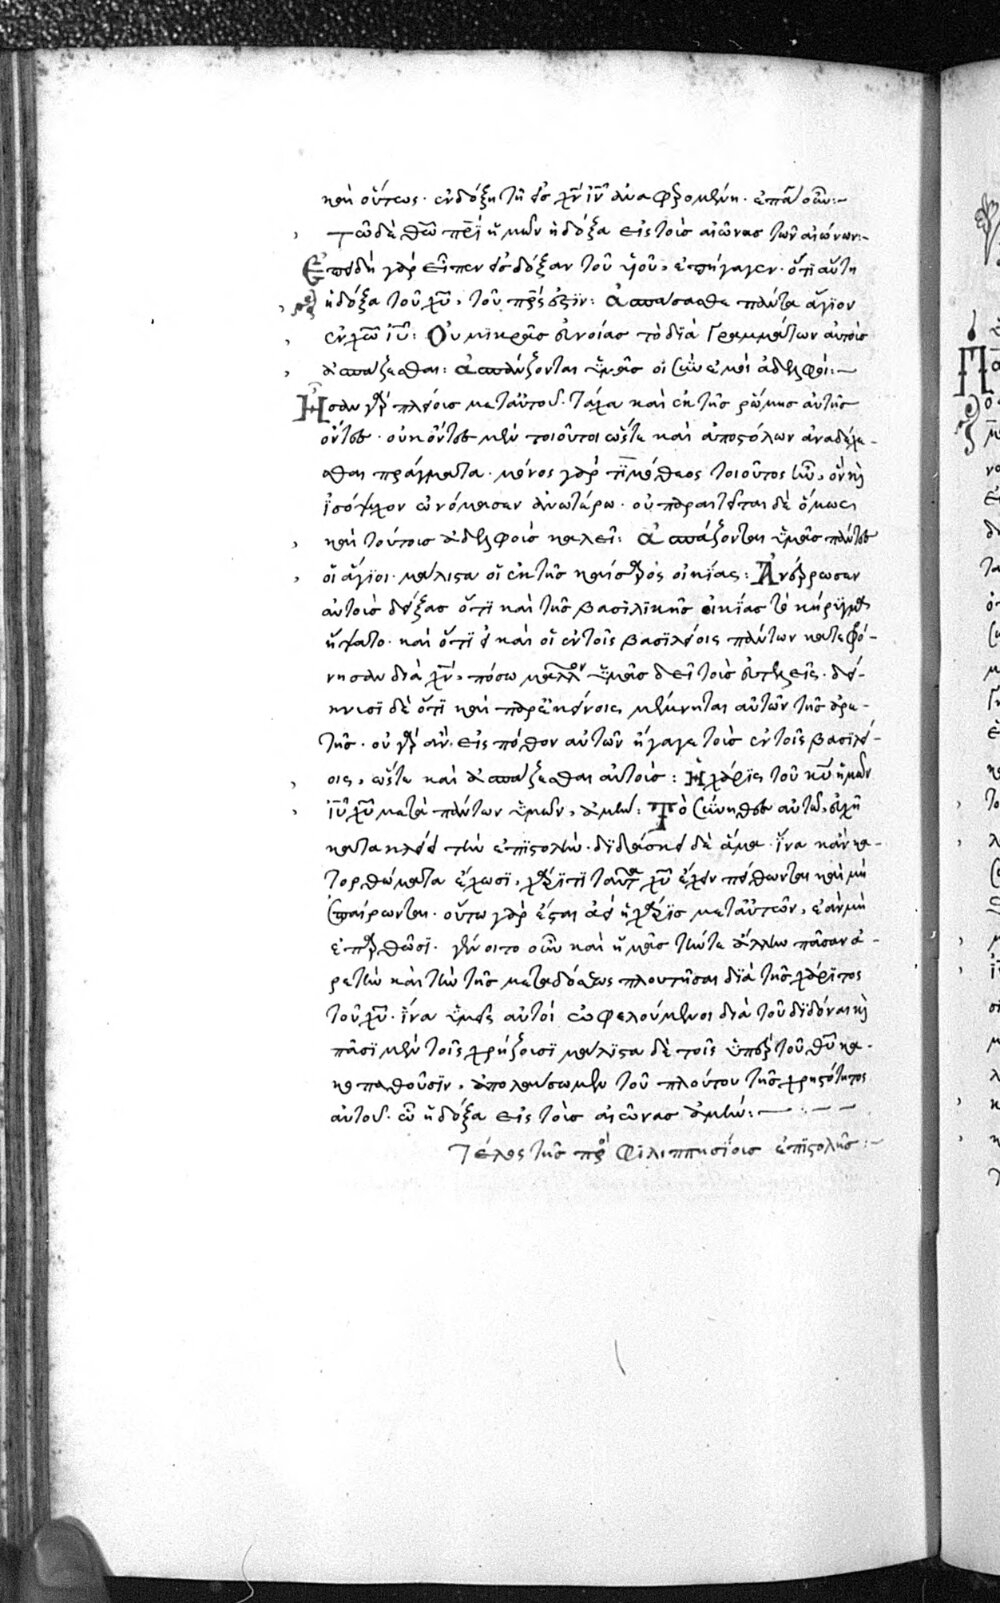 καὶ οὕτως· ἐν δόξῃ τῇ ἐν χ̅ω̅ ἰ̅υ̅ ἀναφερομένῃ·
τῶ δὲ θ̅ω̅ π̅ρ̅ὶ ἡμῶν ἡ δόξα εἰς τοὺς αἰῶνας τῶν αἰώνων:~
Ἐπειδὴ γὰρ εἶπεν εἰς δόξαν τοῦ υ̅ἱοῦ, ἐπήγαγεν· ὅτι αὕτη
ἡ δόξα τοῦ χ̅υ̅, τοῦ π̅ρ̅ς ἐστϊν: Ἀσπάσασθε πάντα ἅγϊον
ἐν χ̅ω̅ ἰ̅υ̅: Οὐ μϊκρᾶς εὐνοίας τὸ δϊὰ γραμμάτων αὐτοὺς
ἀσπάζεσθαι: ἀσπάζονται ὑμᾶς οἱ σὺν ἐμοὶ ἀδελφοί:~
Ἦσαν γὰρ πλείους μετ αὐτοῦ· τάχα καὶ ἐκ τῆς ῥώμης αὐτῆς
ὄντες· οὐκ ὄντες μὲν τοιοῦτοι ὥστε καὶ ἀποστόλων ἀναδέχε-
σθαι πράγματα· μόνος γὰρ τϊμόθεος τοιοῦτος ἦν, ὃν καὶ
ἰσόψυχον ὠνόμασεν ἀνωτέρω· οὐ παραιτεῖται δὲ ὅμως
καὶ τούτους ἀδελφοὺς καλεῖν: Ἀσπάζονται ὑμᾶς πάντες
οἱ ἅγϊοι· μάλιστα οἱ ἐκ τῆς καίσαρος οἰκΐας: Ἀνέρρωσεν
αὐτοὺς δείξας ὅτϊ καὶ τῆς βασϊλϊκῆς οἰκΐας τὸ κήρυγμα
ἥψατο· καὶ ὅτϊ εἰ καὶ οἱ ἐν τοῖς βασϊλείοις πάντων κατεφρό-
νησαν διὰ χ̅ν̅, πόσω μᾶλλον ὑμᾶς δεῖ τοὺς εὐτελεῖς· δεί-
κνυσϊ δὲ ὅτϊ καὶ παρ ἐκείνοις μέμνηται αὐτῶν τῆς ἀρε-
τῆς· οὐ γὰρ ἂν εἰς πόθον αὐτῶν ἤγαγε τοὺς ἐν τοῖς βασϊλεί-
οις, ὥστε καὶ ἀσπάζεσθαι αὐτούς: Ἡ χάρϊς τοῦ κ̅υ̅ ἡμῶν
ἰ̅υ̅ χ̅υ̅ μετὰ πάντων ὑμῶν, ἀμήν: Τὸ σύνηθες αὐτῶ, εὐχῇ
κατακλείει τὴν ἐπϊστολήν· δϊδάσκει δὲ ἅμα· ἵνα κἂν κα-
τορθώματα ἔχωσϊ, χάρϊτϊ ταῦτα χ̅υ̅ ἔχειν πείθωνται καὶ μὴ
ἐπαίρωνται· οὕτω γὰρ ἔσται ἀεὶ ἡ χάρϊς μετ αὐτῶν, ἐὰν μὴ
ἐπαρθῶσϊ· γένοιτο οὖν καὶ ἡμᾶς τήν τε ἄλλην πᾶσαν ἀ-
ρετὴν καὶ τὴν τῆς μεταδόσεως πλουτῆσαι δϊὰ τῆς χάρϊτος
τοῦ χ̅υ̅· ἵνα ὑμεῖς αὐτοὶ ὠφελούμενοι διὰ τοῦ δϊδόναι καὶ
πᾶσϊ μὲν τοῖς χρήζουσϊ μάλϊστα δὲ τοῖς ὑπὲρ τοῦ θ̅υ̅ κα-
κοπαθοῦσϊν, ἀπολαύσωμεν τοῦ πλούτου τῆς χρηστότητος
αὐτοῦ· ὧ ἡ δόξα εἰς τοὺς αἰῶνας ἀμήν:~
Τέλος τῆς πρὸς Φϊλιππησΐους ἐπϊστολῆς:~